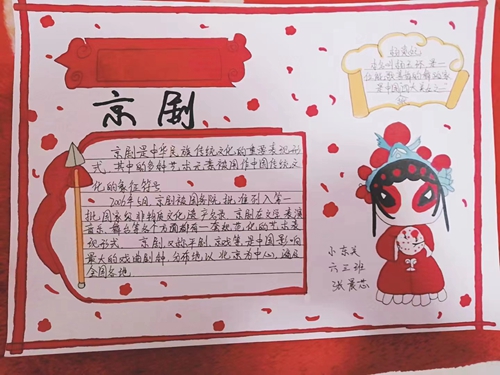 京剧
京剧是中华民族传统文化的重要表现形
式，其中的多种艺术元素被用作中国传统文
化的象征符号
2006年5月，京剧被国务院批准列入第一
批国家级非物质文化遗产名录。京剧在文学表演
音乐、舞台等各个方面都有一套规范化的艺术表
现形式。京剧，又称平剧，京戏等，是中国影响
最大的戏曲剧种，分布地以北京为中心，遍及
全国各地
杨贵妃
是中国四大美女之一
小东关
六三班